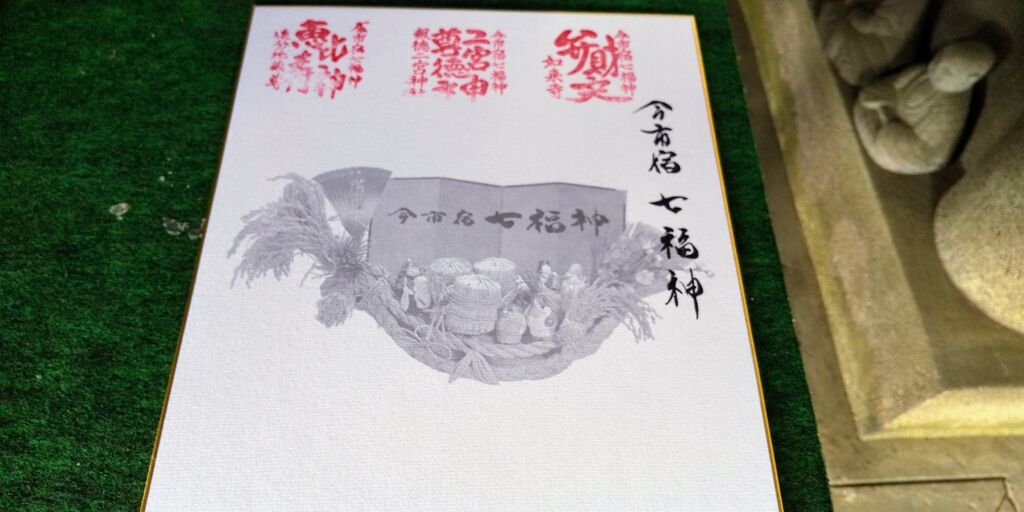 今市宿七福神
弁財天
如来寺
今市宿七福神
二宮尊徳
報徳二宮神社
今市宿七福神
今市宿 七福神
今市宿 七福神